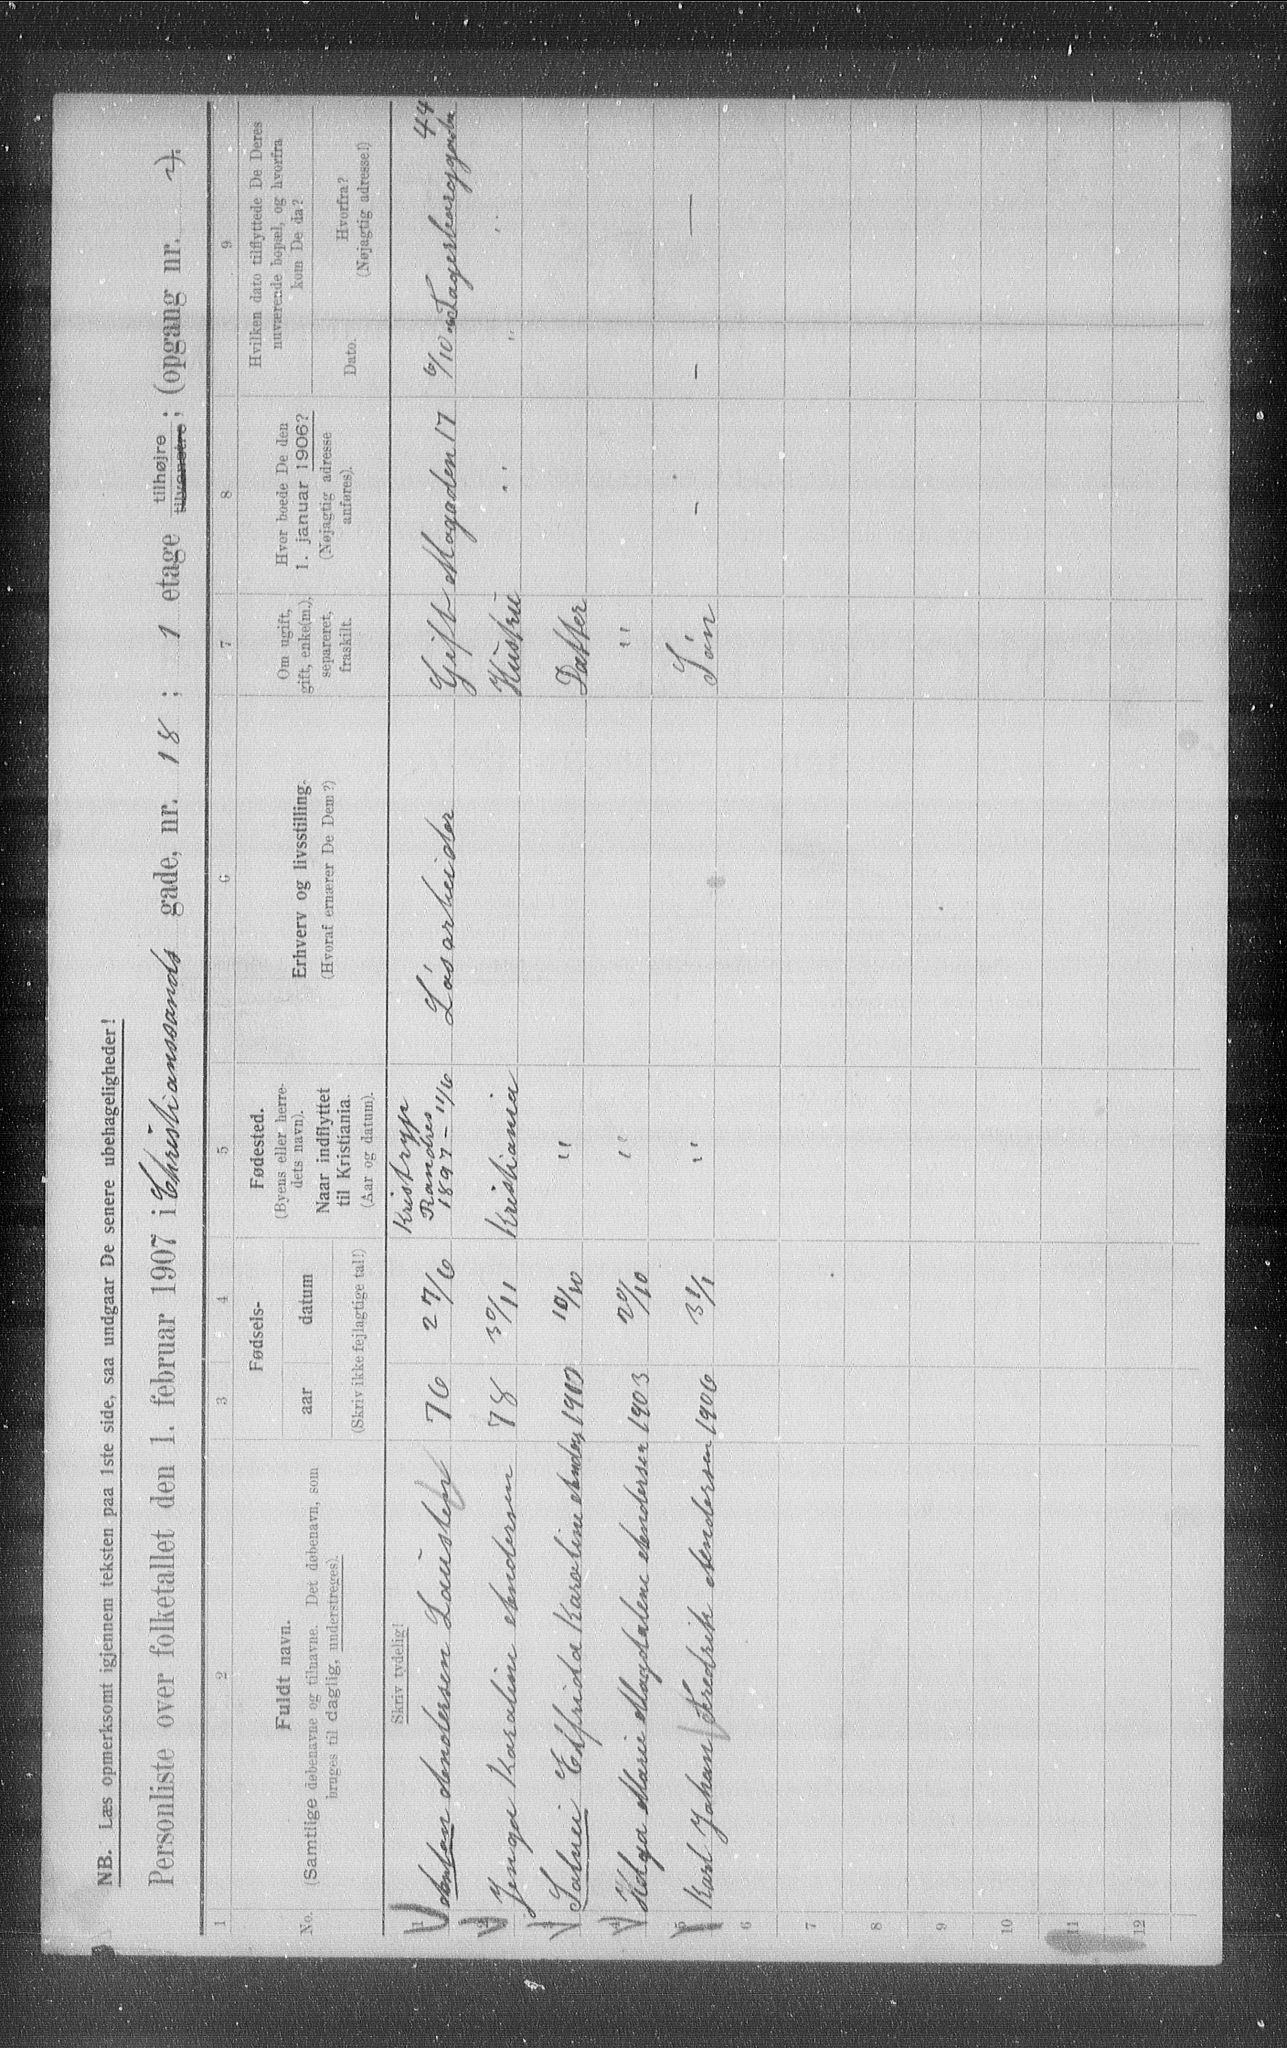 NB. Læs opmerksomt igjennem teksten paa 1ste side, saa undgaar De senere ubehageligheder!
Personliste over folketallet den 1. februar 1907 i Christianssands gade, nr. 18; 1 etage tilhøjre tilvenstre; (opgang nr. 2).
1 2 3 4 5 6 7 8 9
No.
Fuldt navn.
(Samtlige døbenavne og tilnavne. Det døbenavn, som
bruges til daglig, understreges).
Fødsels-
aar datum
(Skriv ikke fejlagtige tal!)
Fødested.
(Byens eller herre-
dets navn).
Naar indflyttet
til Kristiania.
(Aar og datum).
Erhverv og livsstilling.
(Hvoraf ernærer De Dem?)
Om ugift,
gift, enke(m.),
separeret,
fraskilt.
Hvor boede De den
1. januar 1906?
(Nøjagtig adresse
anføres).
Hvilken dato tilflyttede De Deres
nuværende bopæl, og hvorfra
kom De da?
Dato.
Hvorfra?
(Nøjagtig adresse!)
Skriv tydelig!
1 Anton Andersen 76 27/6 Randres 1897 – 11/6 Løsarbeider Gift Magaden 17 6/10 44
2 Jenga Karoline Andersen 78 30/11 Kristiania Hustru " " "
3 Solvei Elfrida Karoline 10/10 " Datter
4 Helga Marie Magdalene Andersen 1903 20/10 " "
5 Karl Johan Fredrik Andersen 1906 31/1 " Søn – – —
6
7
8
9
10
11
12